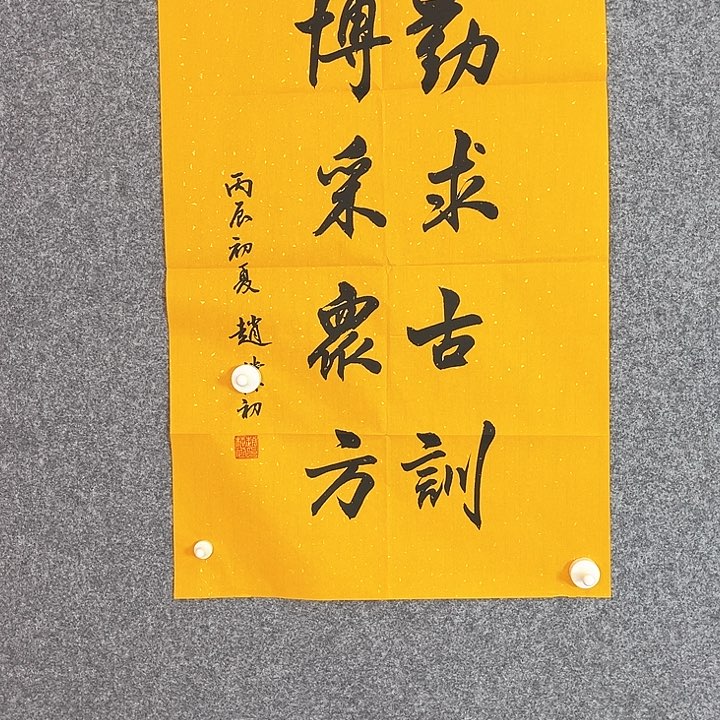 勤求古訓
博采眾方
丙辰初夏 趙 初